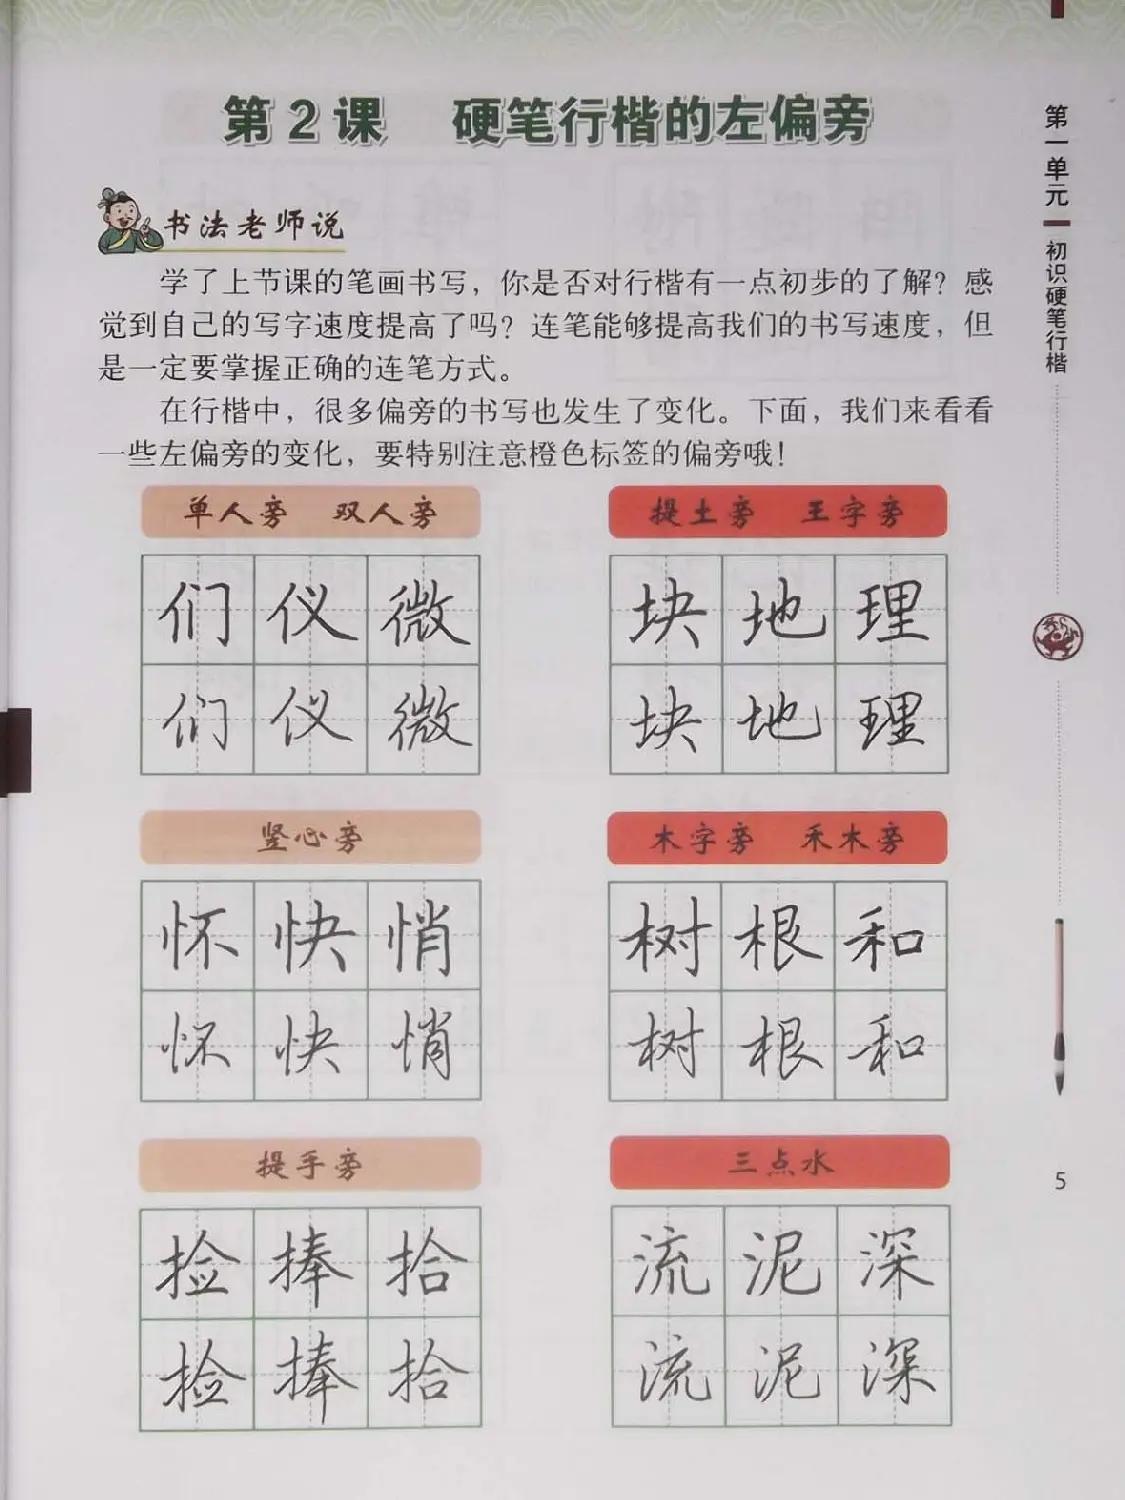 第2课 硬笔行楷的左偏旁
书法老师说
学了上节课的笔画书写，你是否对行楷有一点初步的了解？感
觉到自己的写字速度提高了吗？连笔能够提高我们的书写速度，但
是一定要掌握正确的连笔方式。
在行楷中，很多偏旁的书写也发生了变化。下面，我们来看看
一些左偏旁的变化，要特别注意橙色标签的偏旁哦！
单人旁 双人旁
们仪微
们仪微
提土旁 王字旁
块地理
块地理
竖心旁
怀快悄
怀快悄
木字旁 禾木旁
树根和
树根和
提手旁
捡捧拾
捡捧拾
三点水
流泥深
流泥深
第一单元
初识硬笔行楷
5